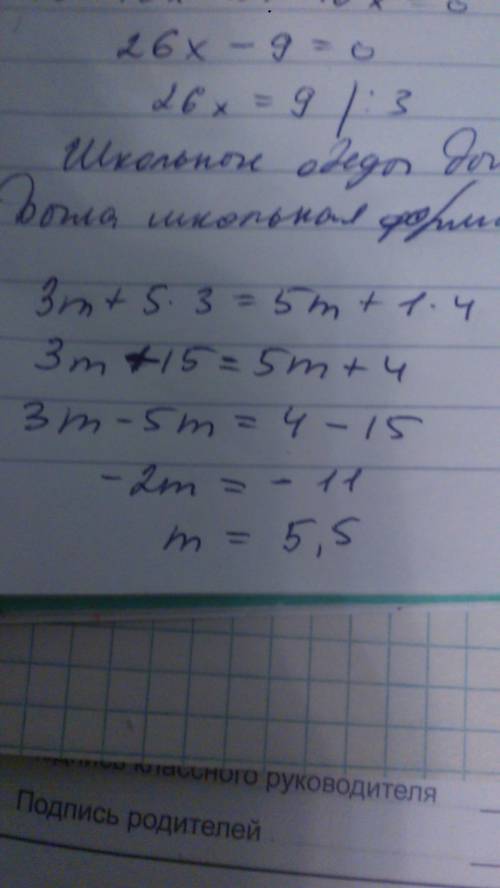 26x - 9 = 0
26x = 9 /:3
Школьные обеды
школьная
3m + 5·3 = 5m + 1·4
3m + 15 = 5m + 4
3m - 5m = 4 - 15
-2m = - 11
m = 5,5
классного руководителя
Подпись родителей